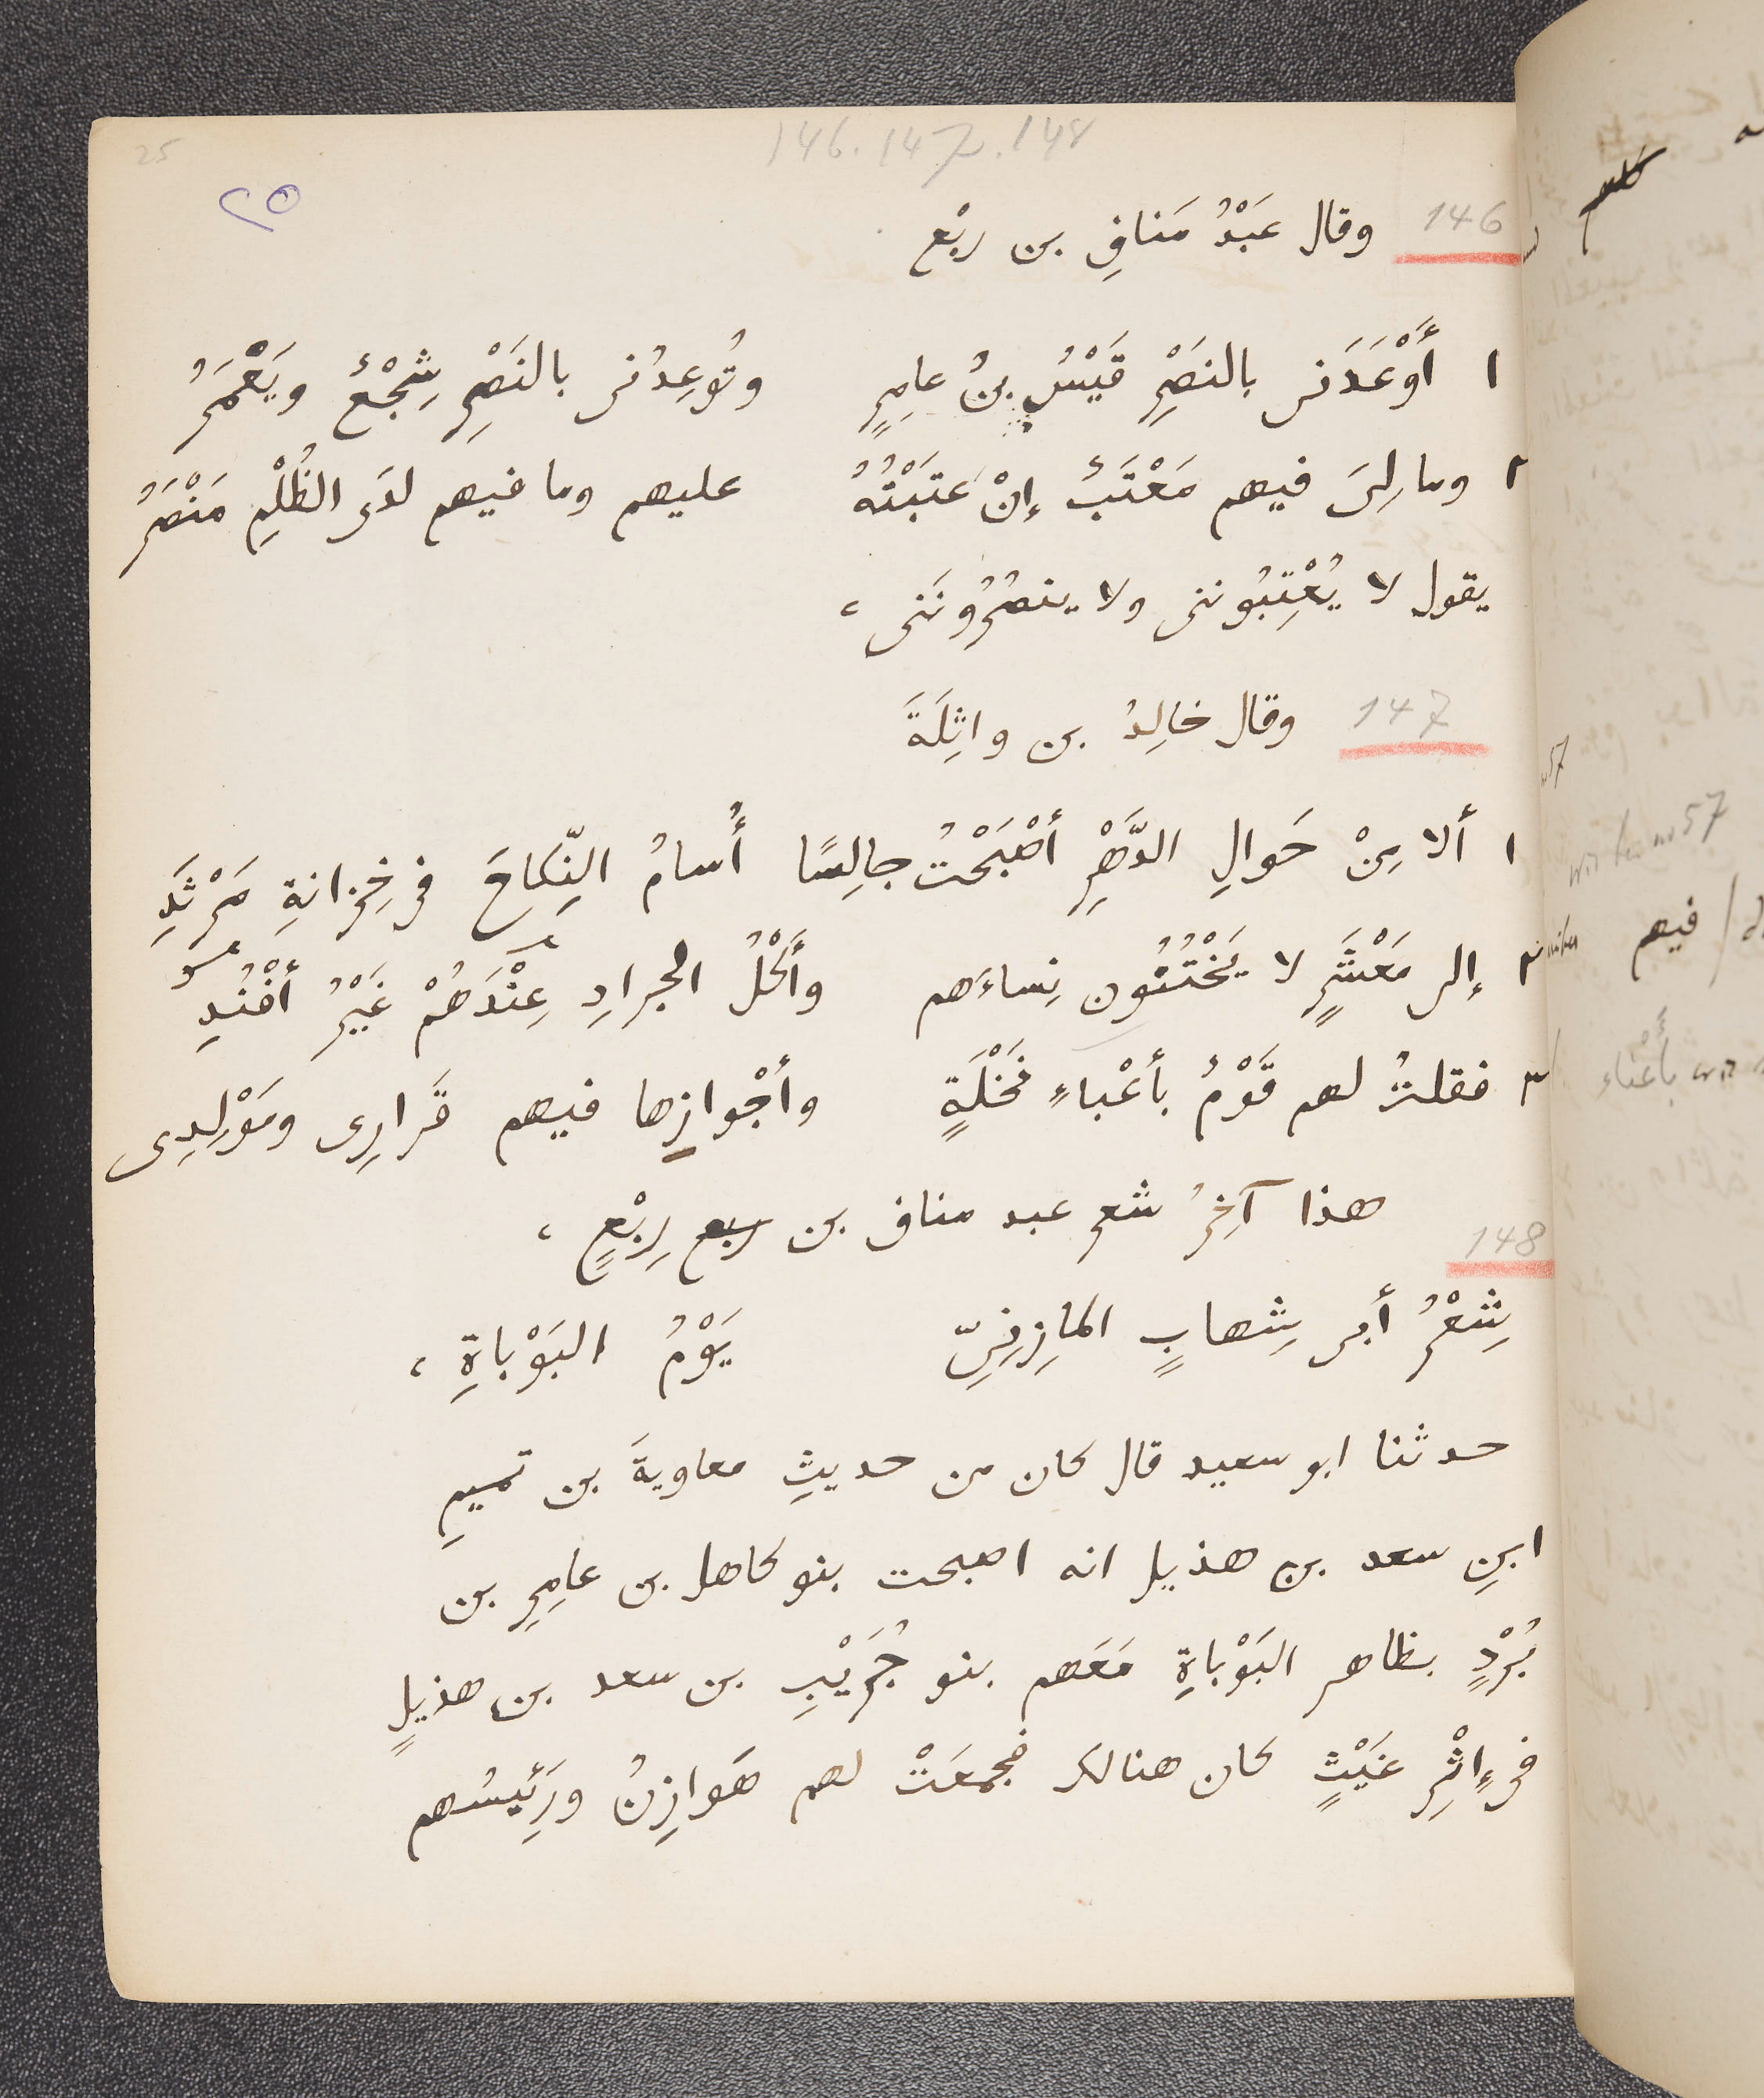 146. 147. 148
25
٢٥
146 وقال عَبْدُ مَنافِ بن رِبْع
١ أَوْعَدَنى بالنصْرِ قَيْسُ بنُ عامِرٍ وتُوعِدُنى بالنَصْرِ شِجْعُ ويَعْمَرُ
٢ وما لِىَ فيهم مَعْتَبُ إنْ عَتَبْتُهُ عليهم وما فيهم لدَى الظُلْمِ مَنْصَرُ
يقول لا يُعْتِبُوننى ولا ينصُرُونَنى ،
147 وقال خالِدُ بن واثِلَةَ
١ ألا مِنْ حَوالِ الدَّهْرِ أصْبَحْتُ جالِسًا أُسامُ النِّكاحَ فى خِزانةِ مَرْثَدِ
٢ إلى مَعْشَرٍ لا يَخْتُنُون نِساءَهم وأَكْلُ الجرادِ عِنْدَهُمْ غَيْرُ أفْنُدِ
٣ فقلتُ لهم قَوْمُ بأعْباءِ نَخْلَةٍ وأجْوازِها فيهم قَرارِى ومَوْلِدِى
هذا آخِرُ شعر عبد مناف بن ربع رِبْعٍ ،
148
شِعْرُ أبى شِهابٍ المازِنِىِّ يَوْمُ البَوْباةِ ،
حدثنا ابو سعيد قال كان من حديثِ معاويةَ بن تميمِ
ابنِ سعد بن هذيل انه اصبحت بنو كاهل بن عامِرِ بن
بُرْدٍ بظاهر البَوْباةِ مَعَهم بنو جُرَيْبِ بن سعد بن هذيلٍ
فى إثْرِ غَيْثٍ كان هنالك فجمعَتْ لهم هَوازِنُ ورَئِيسُهم
فيهم
بأعْناء